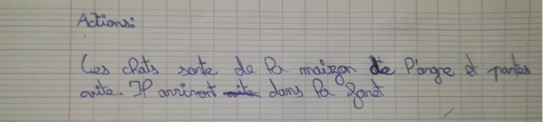 Actions:
Les chats sorte de la maizon de l'ongre et partes
vite. Il arrivont dans la foret